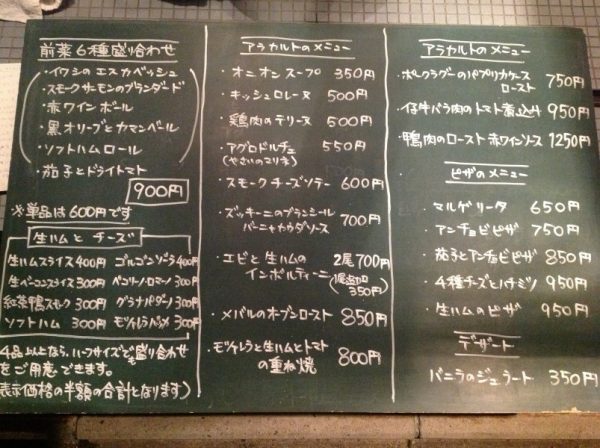 前菜6種盛り合わせ
・イワシのエスカベッシュ
・スモークサーモンのブランダード
・赤ワインボール
・黒オリーブとカマンベール
・ソフトハムロール
・茄子とドライトマト
900円
※単品は600円です
生ハムとチーズ
生ハムスライス400円 ゴルゴンゾーラ400円
生ベーコンスライス300円 ペコリーノロマーノ300円
紅茶鴨スモーク300円 グラナパダーノ300円
ソフトハム300円 モツァレラバッカ300円
4品以上なら、ハーフサイズでも盛り合わせ
をご用意できます。
表示価格の半額の合計となります)
アラカルトのメニュー
・オニオンスープ 350円
・キッシュロレーヌ 500円
・鶏肉のテリーヌ 500円
・アグロドルチェ 550円
(やさいのマリネ)
・スモークチーズソテー 600円
・ズッキーニのブランシール
バーニャカウダソース 700円
・エビと生ハムの 2尾700円
インボルティーニ (1尾追加
350円)
・メバルのオーブンロースト 850円
・モツァレラと生ハムとトマト
の重ね焼 800円
アラカルトのメニュー
・ポークラグーのパプリカケース
ロースト 750円
・仔牛バラ肉のトマト煮込み 950円
・鴨肉のロースト赤ワインソース 1250円
ピザのメニュー
・マルゲリータ 650円
・アンチョビピザ 750円
・茄子とアンチョビピザ 850円
・4種チーズとハチミツ 950円
・生ハムのピザ 950円
デザート
・バニラのジェラート 350円